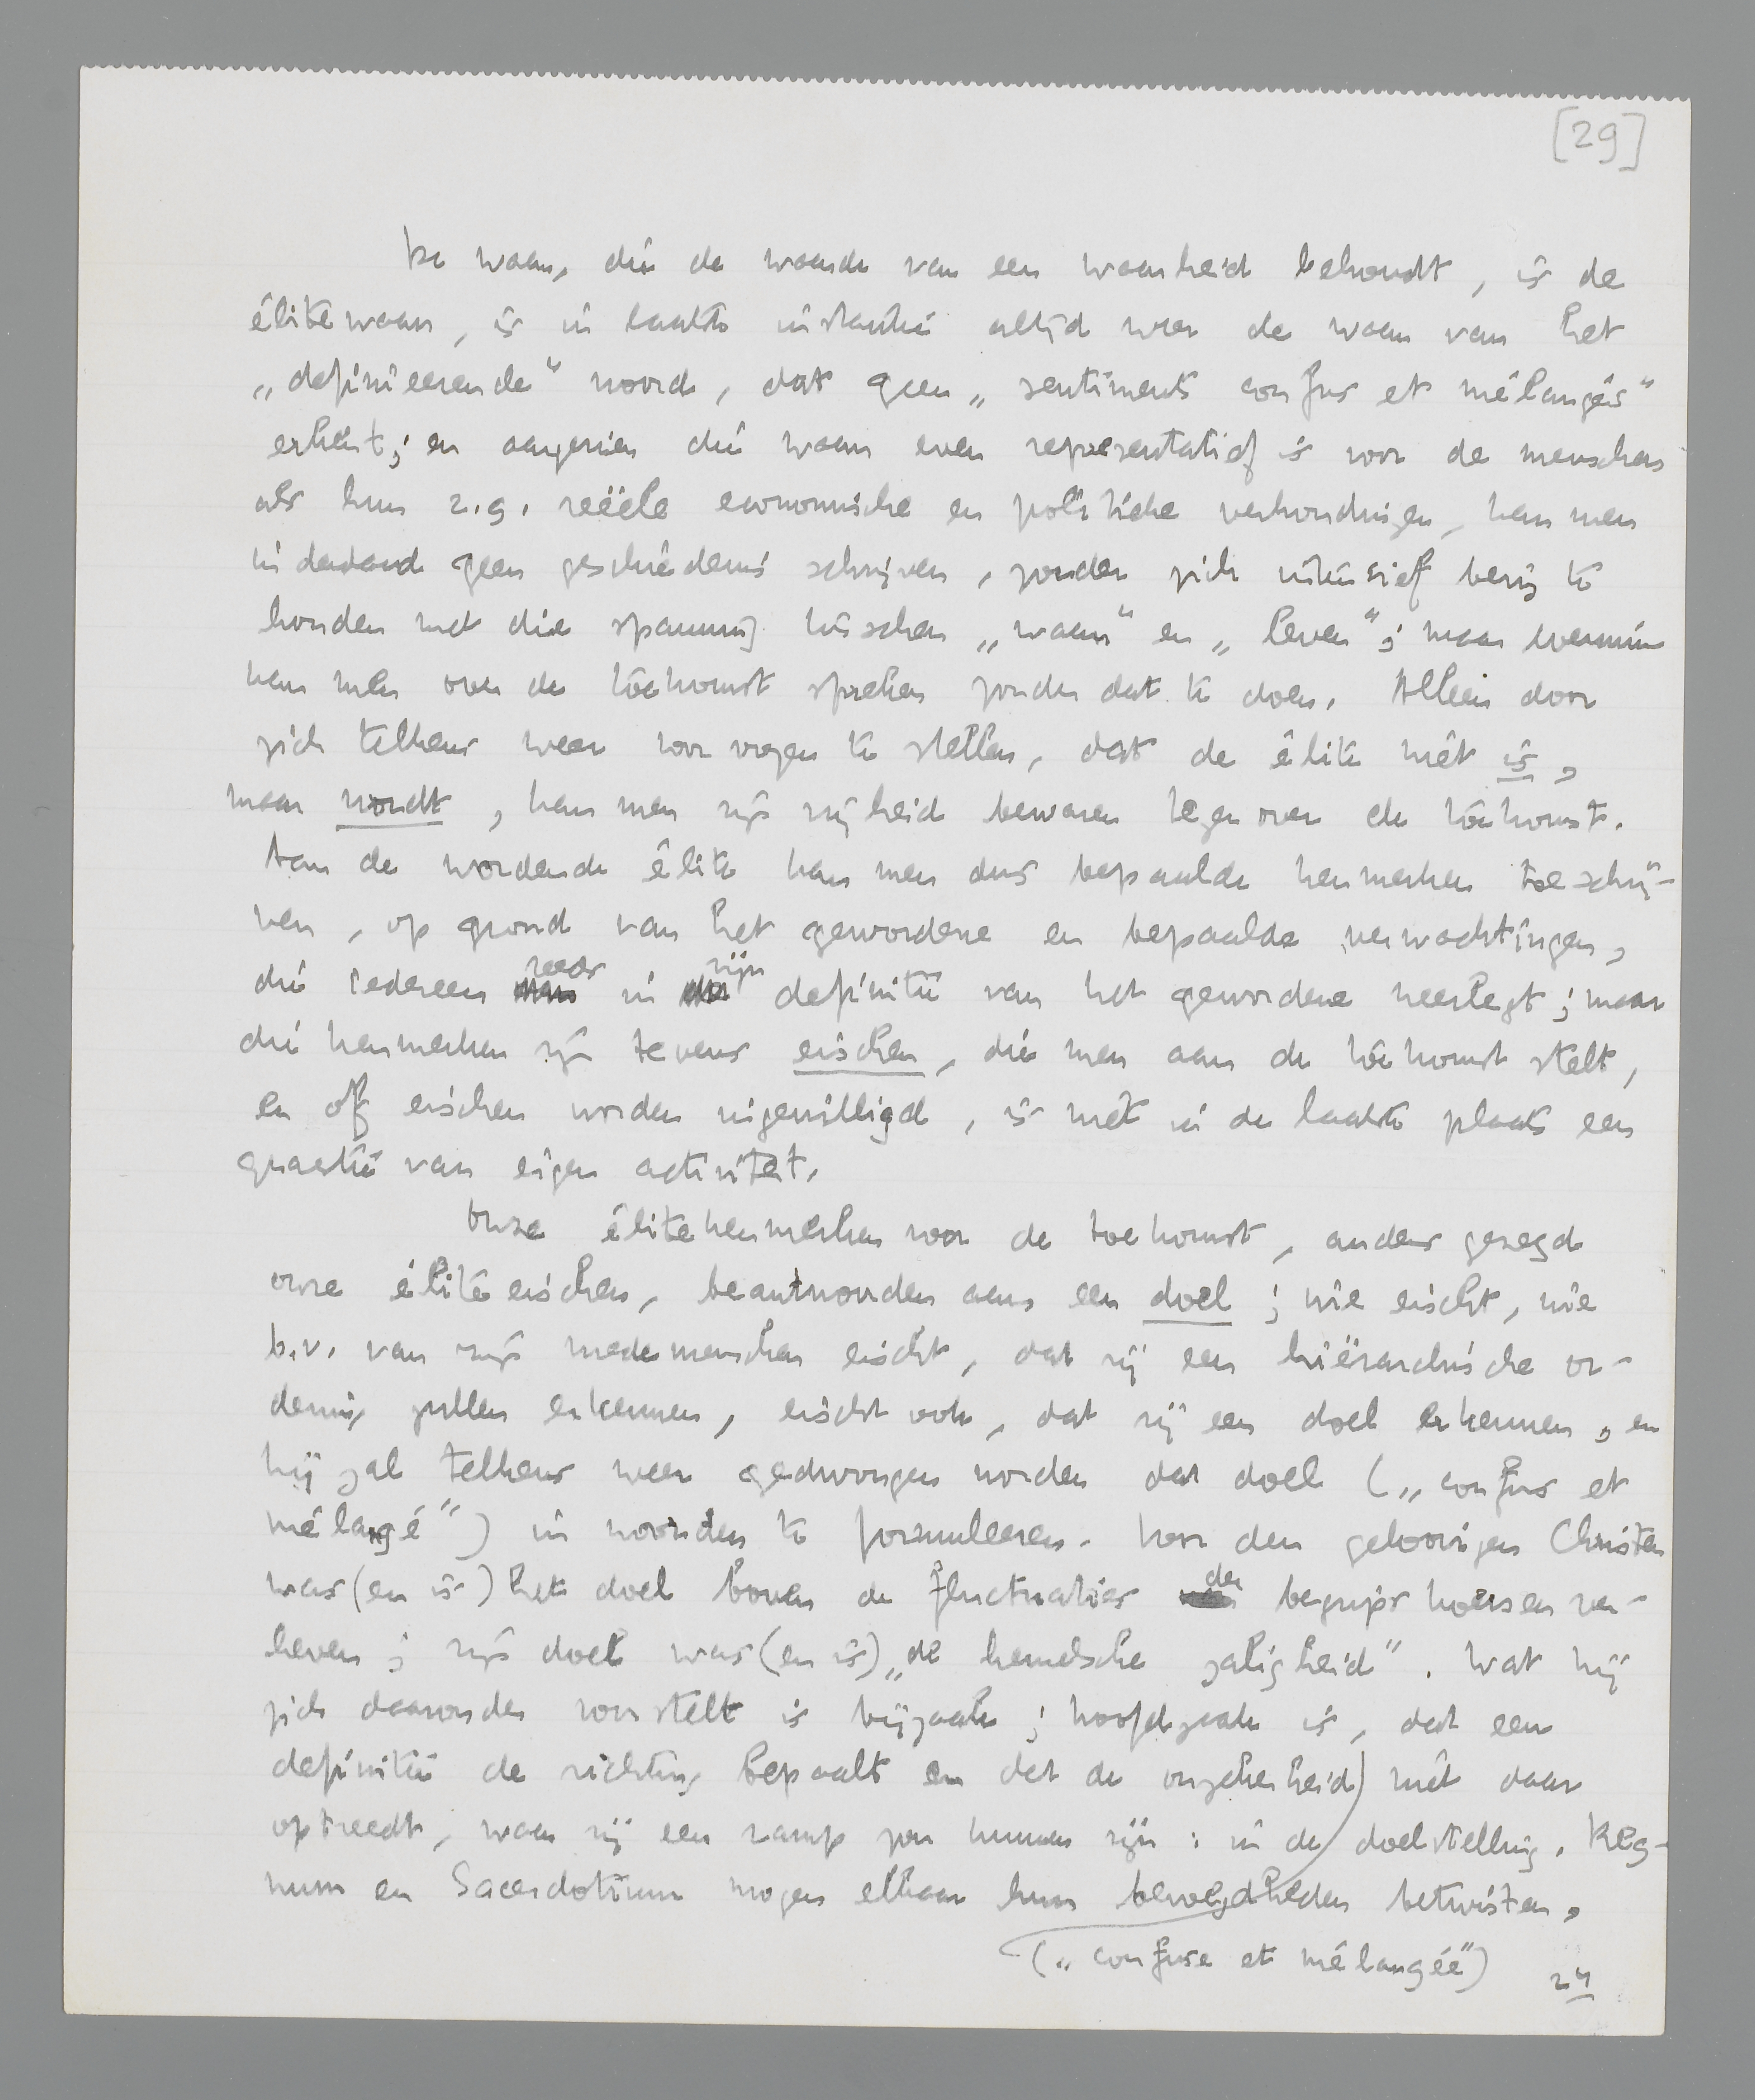 [29]
De waan, die de waarde van een waarheid behoudt, is de
élitewaan, is in laatste instantie altijd weer de waan van het
„definieerende" woord, dat geen „sentiments confus et mélangés"
erkent; en aangezien die waan even representatief is voor de menschen
als hun z.g. reëele economische en politieke verhoudingen, kan men
inderdaad geen geschiedenis schrijven, zonder zich intensief bezig te
houden met die spanning tusschen „waan" en „leven"; maar evenmin
kan men over de toekomst spreken zonder dat te doen. Alleen door
zich telkens weer voor oogen te stellen, dat de élite niet is,
maar wordt, kan men zijn vrijheid bewaren tegenover de toekomst.
Aan de wordende élite kan men dus bepaalde kenmerken toeschrij-
ven, op grond van het gewordene en bepaalde verwachtingen,
die iedereen reeds in zijn definitie van het gewordene neerlegt; maar
die kenmerken zijn tevens eischen, die men aan de toekomst stelt,
en of eischen worden ingewilligd, is niet in de laatste plaats een
quaestie van eigen activiteit.
Onze élitekenmerken voor de toekomst, anders gezegd
onze élite eischen, beantwoorden aan een doel; wie eischt, wie
b.v. van zijn medemenschen eischt, dat zij een hiërarchische or-
dening zullen erkennen, eischt ook, dat zij een doel erkennen, en
hij zal telkens weer gedwongen worden dat doel („confus et
mélangé") in woorden te formuleeren. Voor den geloovigen Christen
was (en is) het doel boven de fluctuaties der begripskoersen ver-
heven; zijn doel was (en is) „de hemelsche zaligheid". Wat hij
zich daaronder voorstelt is bijzaak; hoofdzaak is, dat een
definitie de richting bepaalt en dat de onzekerheid niet daar
optreedt, waar zij een ramp zou kunnen zijn: in de doelstelling. Reg-
num en Sacerdotium mogen elkaar hun bevoegdheden betwisten,
(„confuse et mélangée")
24